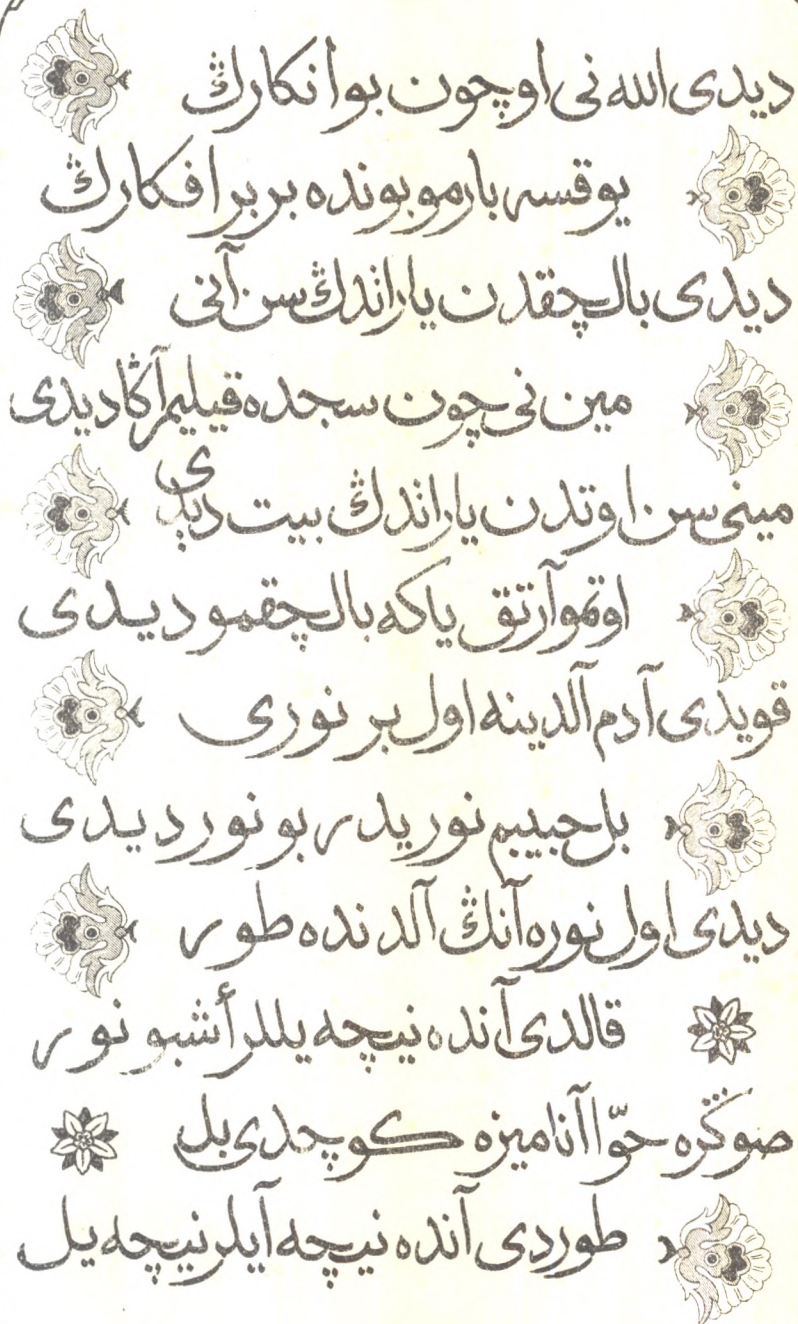 ديدى الله نى اوچون بو انكارڭ
يوقسه بارمو بونده بر بر افكارڭ
ديدى بالچقدن ياراندڭ سن آنى
مين نى چون سجده قيليم آڭا ديدى
مينى سن اوتدن ياراندڭ بيت ديدى
اوتمو آرتق ياكه بالچقمو ديدى
قويدى آدم آلدينه اول بر نورى
بل حبيبم نوريدر بو نور ديدى
ديدى اول نوره آنڭ آلدنده طور
قالدى آنده نيچه يللر أشبو نور
صوڭره حوّا آناميزه كوچدى بل
طوردى آنده نيچه آيلر نيچه يل